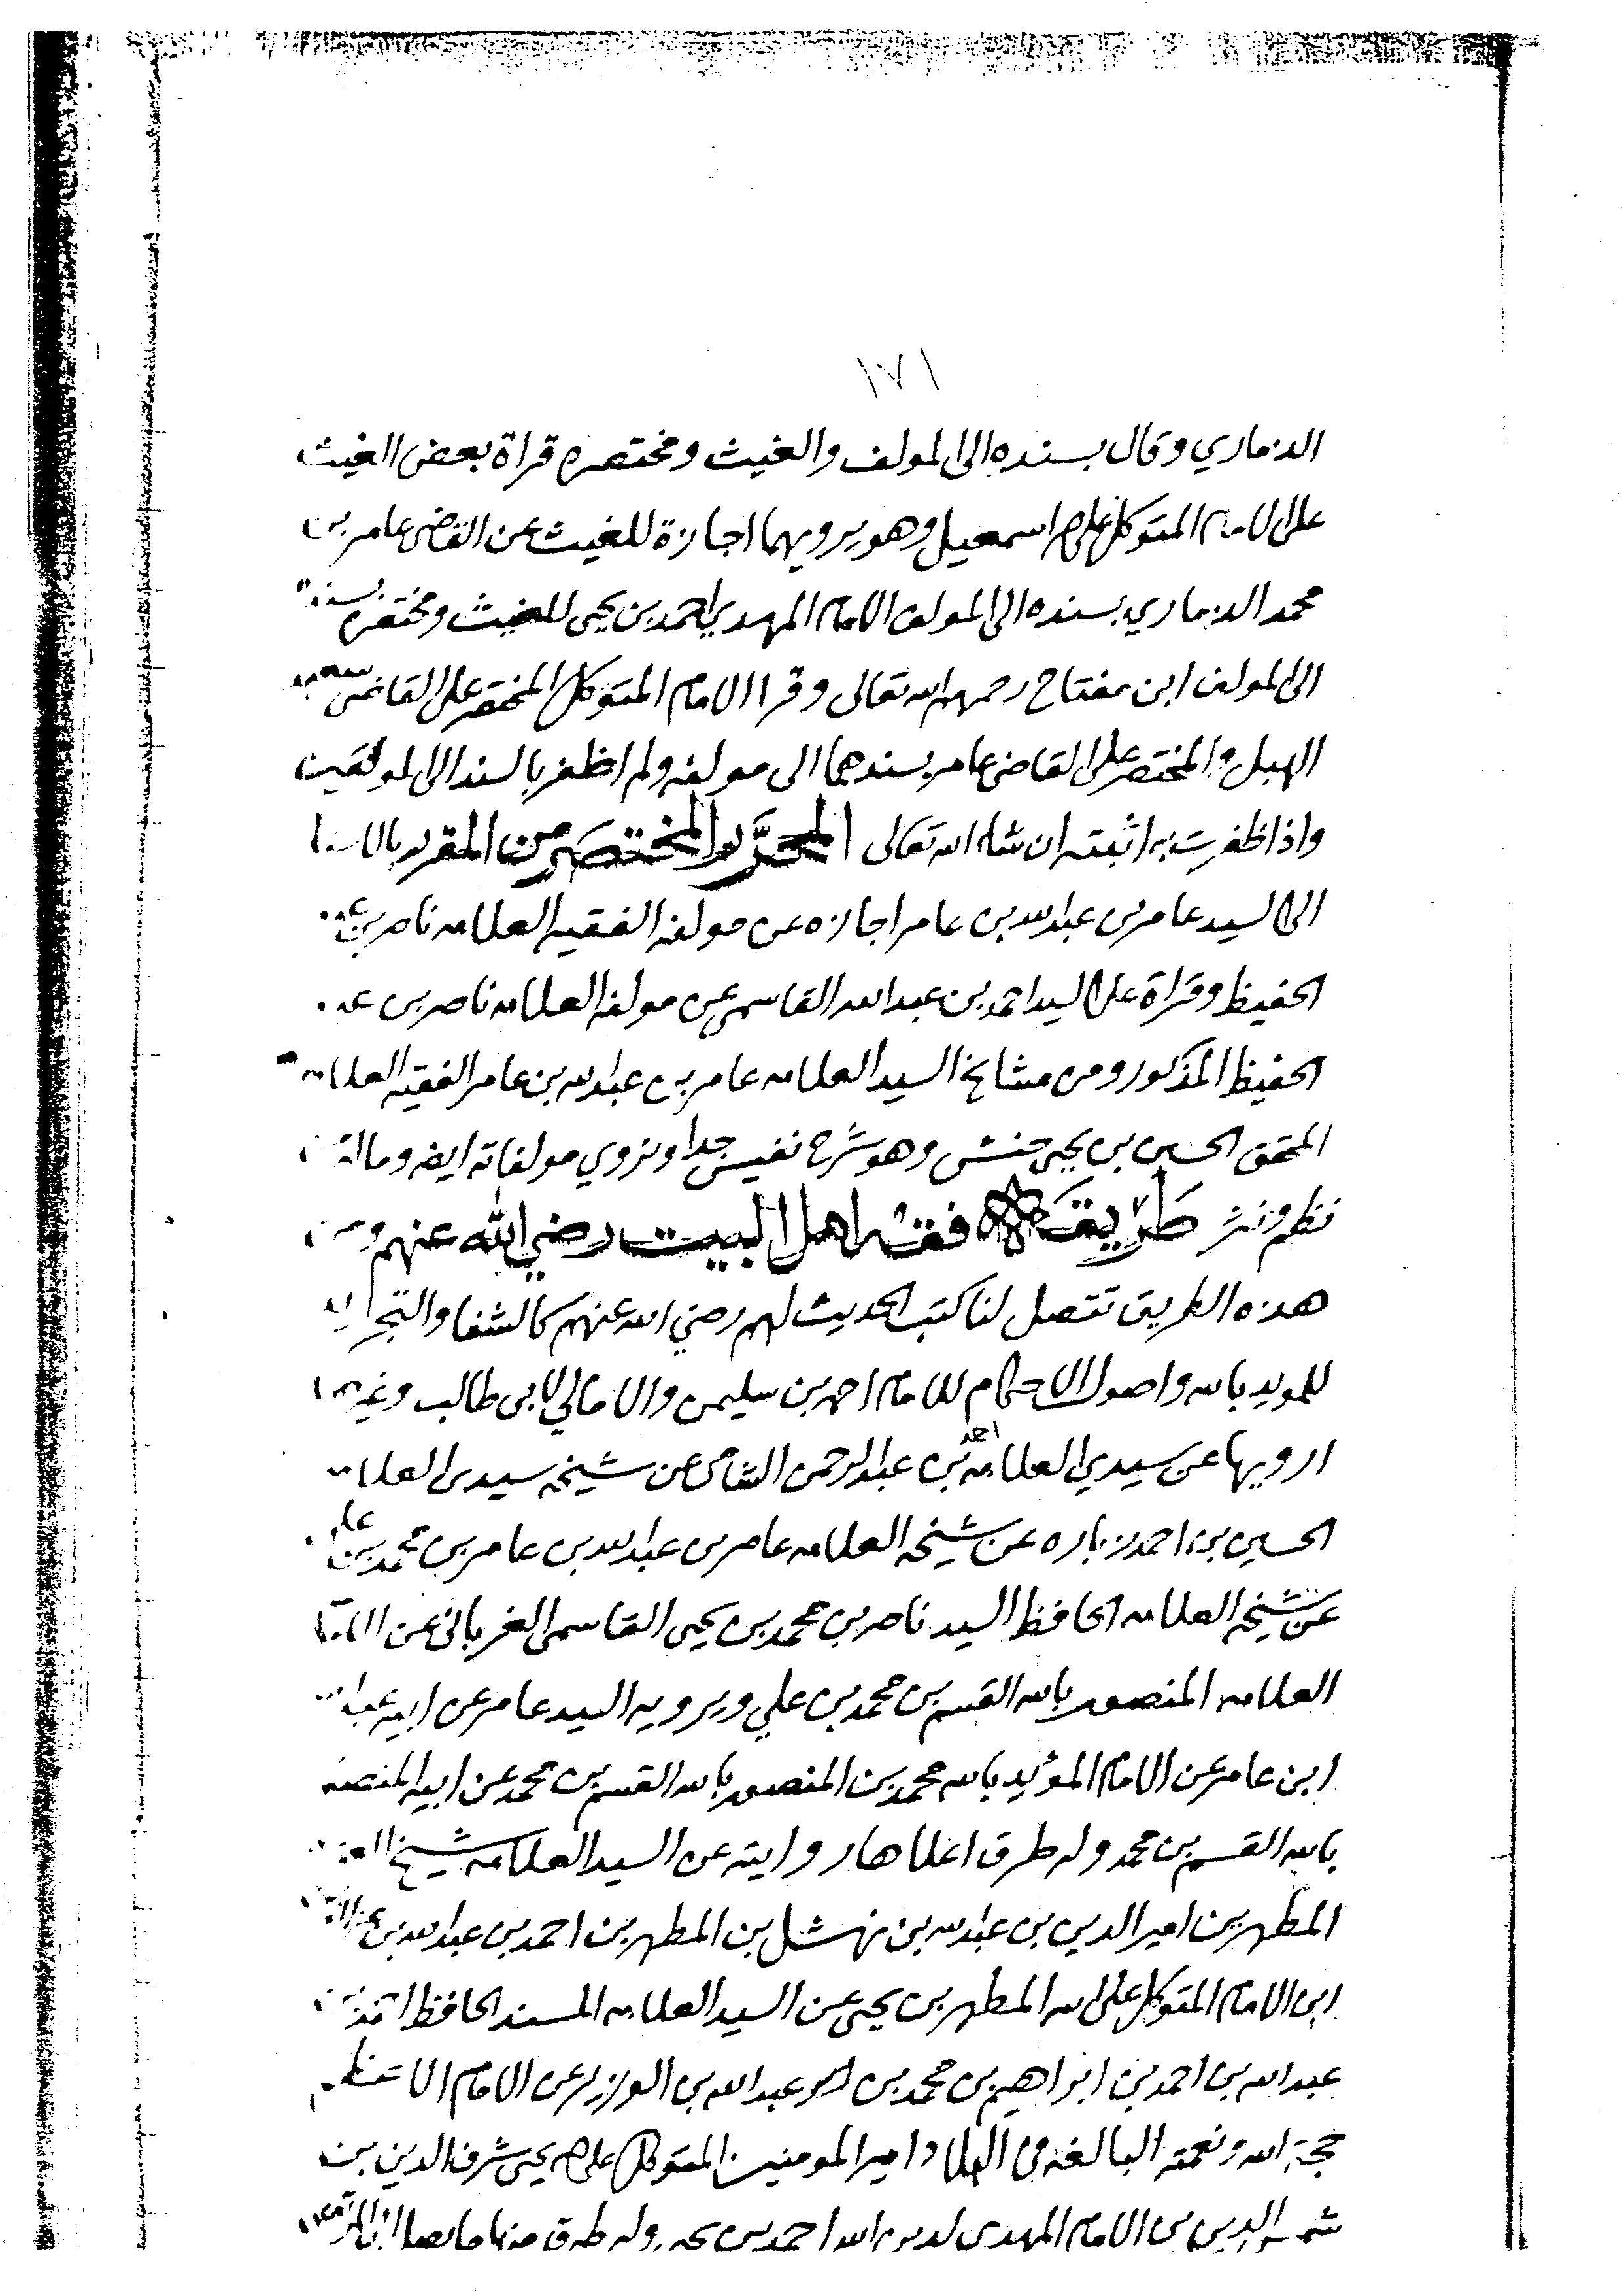 ١٧١
الذماري وقال بسنده الى المولف والغيث ومختصره قراة بعض الغيث
على الامام المتوكل على الله اسمعيل وهو يرويهما اجازة للغيث عن القاضي عامر بن
محمد الذماري بسنده الى المولف الامام المهدي احمد بن يحيى للغيث ومختصره بسنده
الى المولف ابن مفتاح رحمهم الله تعالى وقرا الامام المتوكل المختصر على القاضي سعيد
الهبل والمختصر على القاضي عامر بسندهما الى مولفه ولم اظفر بالسند الى المولفين
واذا ظفرت به اثبته ان شاء الله تعالى المحرر المختصر من المقرر بالاسناد
الى السيد عامر بن عبدالله بن عامر اجازه عن مولفه الفقيه العلامه ناصر بن
الحفيظ وقراة على السيد احمد بن عبدالله القاسمي عن مولفه العلامه ناصر بن
الحفيظ المذكور ومن مشايخ السيد العلامه عامر بن عبدالله بن عامر الفقيه العلامه
المحقق الحسين بن يحيى حنش وهو شرح نفيس جدا ونروي مولفاته ايضه وماله
نظم ونثر طريقة فقه اهل البيت رضي الله عنهم ومن
هذه الطريق تتصل لنا كتب الحديث لهم رضي الله عنهم كالشفا والتجريد
للمويد بالله واصول الاحكام للامام احمد بن سليمن والامالي لابي طالب وغيرها
ارويها عن سيدي العلامه احمد بن عبدالرحمن الشامي عن شيخه سيدي العلامه
الحسين بن احمد زباره عن شيخه العلامه عامر بن عبدالله بن عامر بن محمد بن علي
عن شيخه العلامه الحافظ السيد ناصر بن محمد بن يحيى القاسمي الغرباني عن الامام
العلامه المنصور بالله القسم بن محمد بن علي ويرويه السيد عامر عن ابيه عبدالله
ابن عامر عن الامام المؤيد بالله محمد بن المنصور بالله القسم بن محمد عن ابيه المنصور
بالله القسم بن محمد وله طرق اعلاها روايته عن السيد العلامه شيخ
المطهر بن امير الدين بن عبدالله بن نهشل بن المطهر بن احمد بن عبدالله بن
ابن الامام المتوكل على الله المطهر بن يحيى عن السيد العلامه المسند الحافظ
عبدالله بن احمد بن ابراهيم بن محمد بن عبدالله بن الوزير عن الامام الاعظم
حجة الله ونعمته البالغه في البلاد امير المومنين المتوكل على الله يحيى شرف الدين بن
شمس الدين بن الامام المهدي لدين الله احمد بن يحيى وله طرق منها